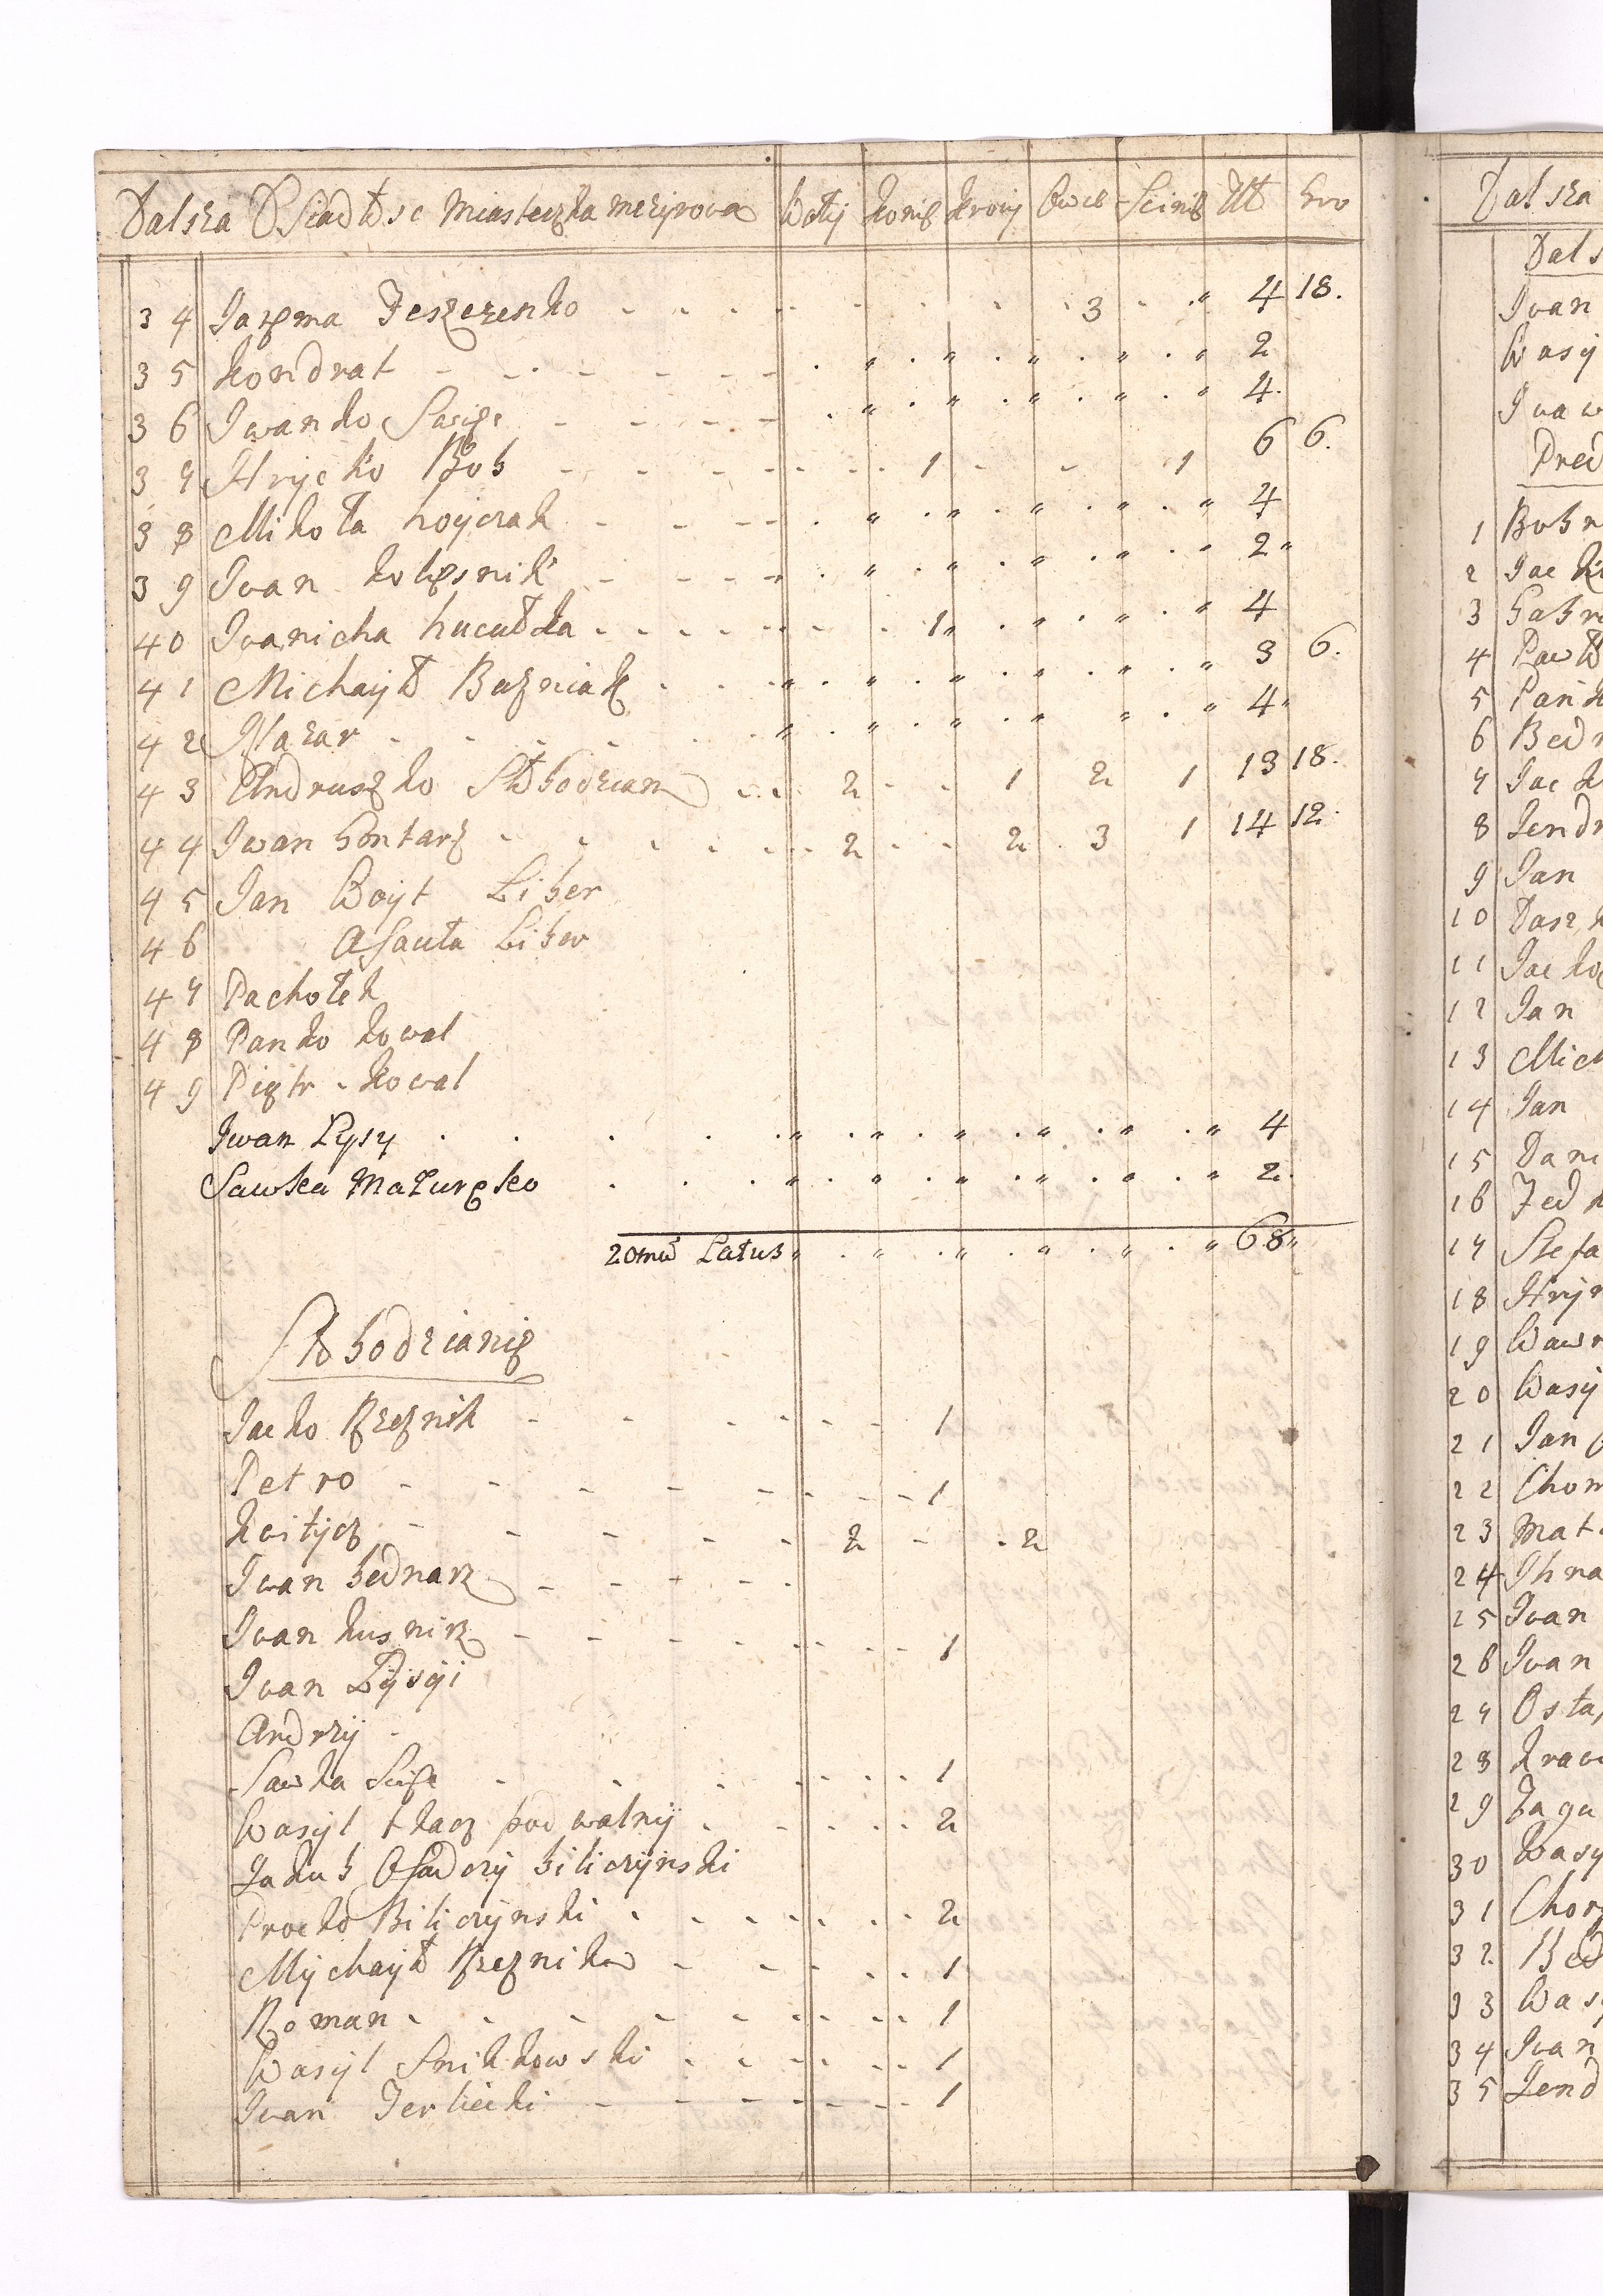 Dalsza Osiadłosc Miasteczka Meżyrowa Woły Konie Krowy Owce Scinie Złł Gro
34 Jarema Jeszczenko 3 " 4 18.
35 Kondrat " " " " " 2
36 Iwanko " " " " " 4.
37 Hryćko Bob 1 1 6 6.
38 Mikoła " " " " " 4
39 Iwan Kolesnik " " " " " 2 "
40 Iwanicha hucułka 1 " " " " 4
41 Michayło " " " " " " 3 6.
42 Nazar " " " " " " 4 "
43 Andruszko Słobodzian 2 1 2 1 13 18.
44 Iwan Gontarz 2 2 3 1 14 12.
45 Jan Woyt Liber
46 Asauła Liber
47 Pachołek
48 Panko Kowal
49 Piotr Kowal
Iwan Łysy " " " " " " 4
Sawka Mazurenko " " " " " " 2.
Latus " " " " " " 68 "
Słobodzianie
Jacko Rzeznik 1
Petro 1
Kwitycz 2 2
Iwan bednarz
Iwan Kusnirz 1
Iwan Łysyi
Andrzy
Sawka 1
Wasyl tkacz pod walny 2
Jakub Osadczy biliczynski
Procko Biliczynski 2
Mychayło Rzeznikow 1
Roman 1
Wasyl Snitkowski 1
Iwan Jerlicki 1
Dalsza
Dals
Iwan
Wasy
Iwa
Pred
1 Bohr
2 Jac
3 Gabr
4 Pawł
5 Pańk
6 Bedn
7 Jack
8 Jendr
9 Jan
10 Dask
11 Jacko
12 Jan
13 Mich
14 Jan
15 Dani
16 Fed
17 Stefa
18 Hryn
19 Wawr
20 Wasy
21 Jan
22 Chom
23 Mat
24 Ihna
25 Iwan
26 Iwan
27 Osta
28 Kraw
29 Zagu
30 Wasy
31 Chor
32 Bed
33 Was
34 Iwan
35 Jend